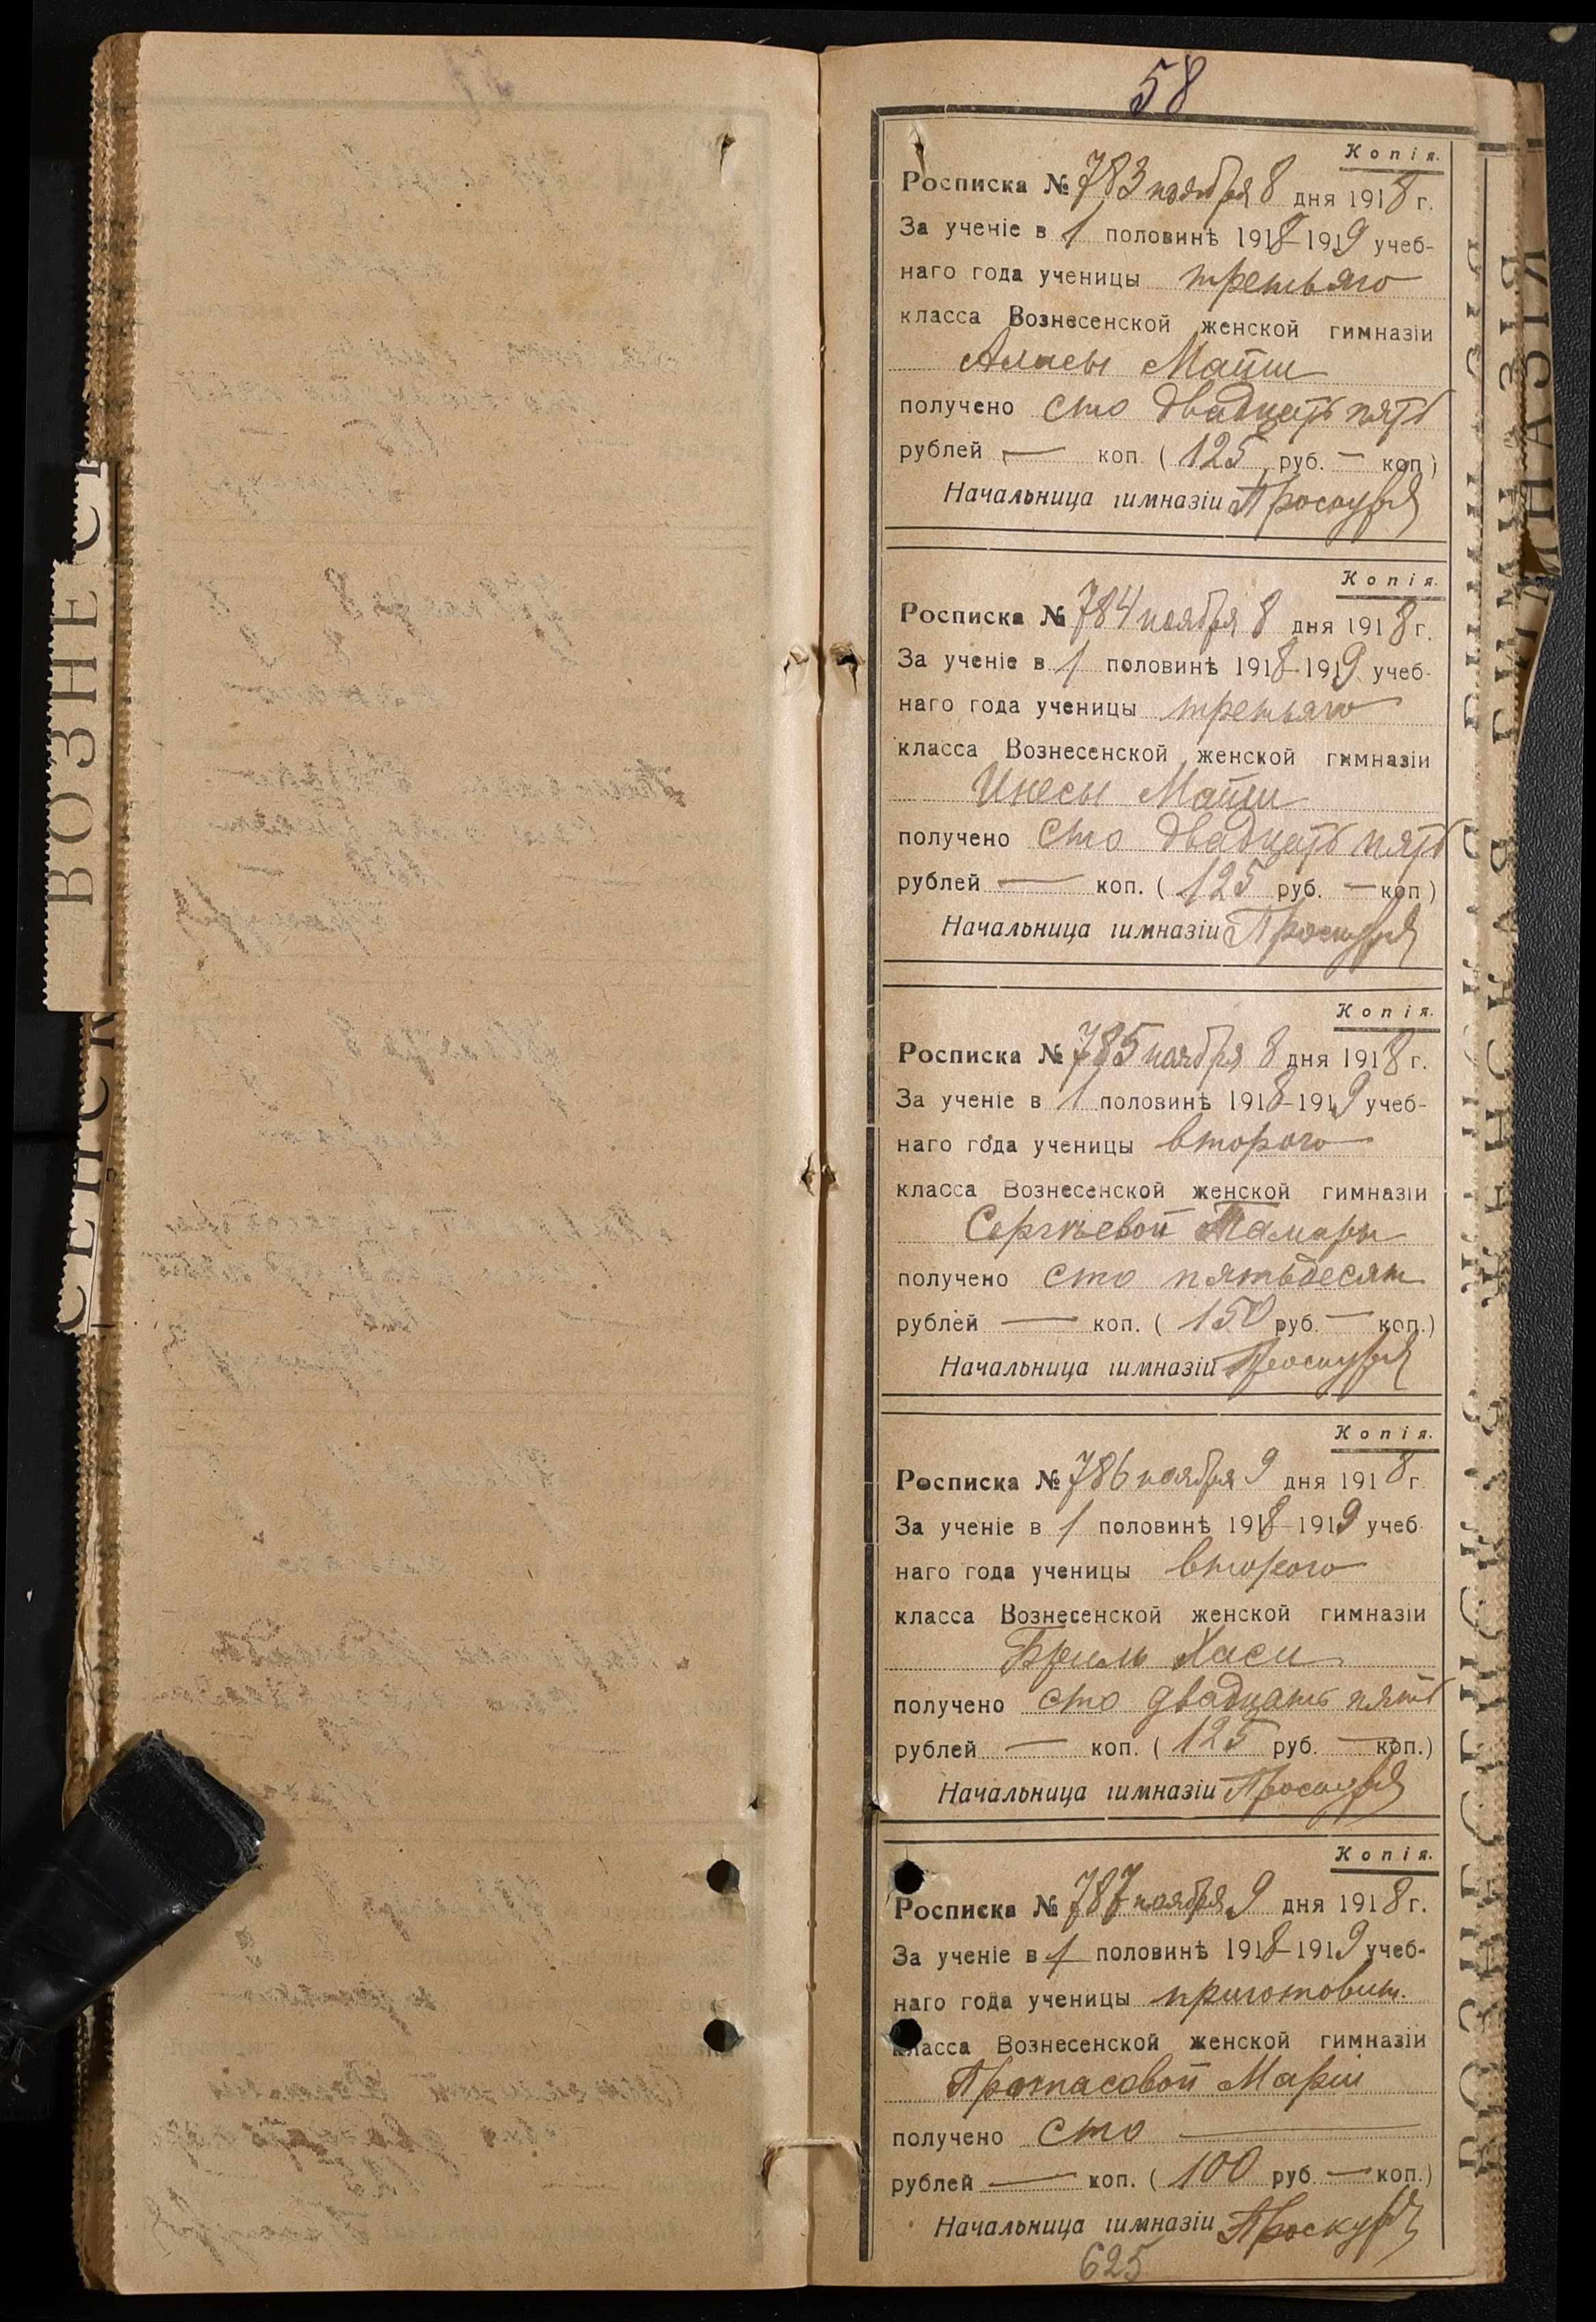 58
Копія.
Росписка № 783 ноября 8 дня 1918 г.
За ученіе в 1 половинѣ 1918-1919 учеб-
наго года ученицы третьяго
класса Вознесенской женской гимназіи
Алисы Матли
получено сто двадцать пять
рублей — коп. (125 руб. — коп)
Начальница гимназіи Проскуря
Копія.
Росписка № 784 ноября 8 дня 1918 г.
За ученіе в 1 половинѣ 1918-1919 учеб-
наго года ученицы третьяго
класса Вознесенской женской гимназіи
Инесы Матли
получено сто двадцать пять
рублей — коп. (125 руб. — коп)
Начальница гимназіи Проскуря
Копія.
Росписка № 785 ноября 8 дня 1918 г.
За ученіе в 1 половинѣ 1918-1919 учеб-
наго года ученицы второго
класса Вознесенской женской гимназіи
Сергѣевой Тамары
получено сто пятьдесят
рублей — коп. (150 руб. — коп.)
Начальница гимназіи Проскуря
Копія.
Росписка № 786 ноября 9 дня 1918 г
За ученіе в 1 половинѣ 1918-1919 учеб
наго года ученицы второго
класса Вознесенской женской гимназіи
Бриль Хаси
получено сто двадцать пять
рублей — коп. (125 руб. — коп.)
Начальница гимназіи Проскуря
Копія.
Росписка № 787 ноября 9 дня 1918 г.
За ученіе в 1 половинѣ 1918-1919 учеб-
наго года ученицы приготовит.
класса Вознесенской женской гимназіи
Протасовой Маріи
получено сто —
рублей — коп. (100 руб — коп.)
Начальница гимназіи Проскуря
625
ВОЗНЕС
СЕНСК